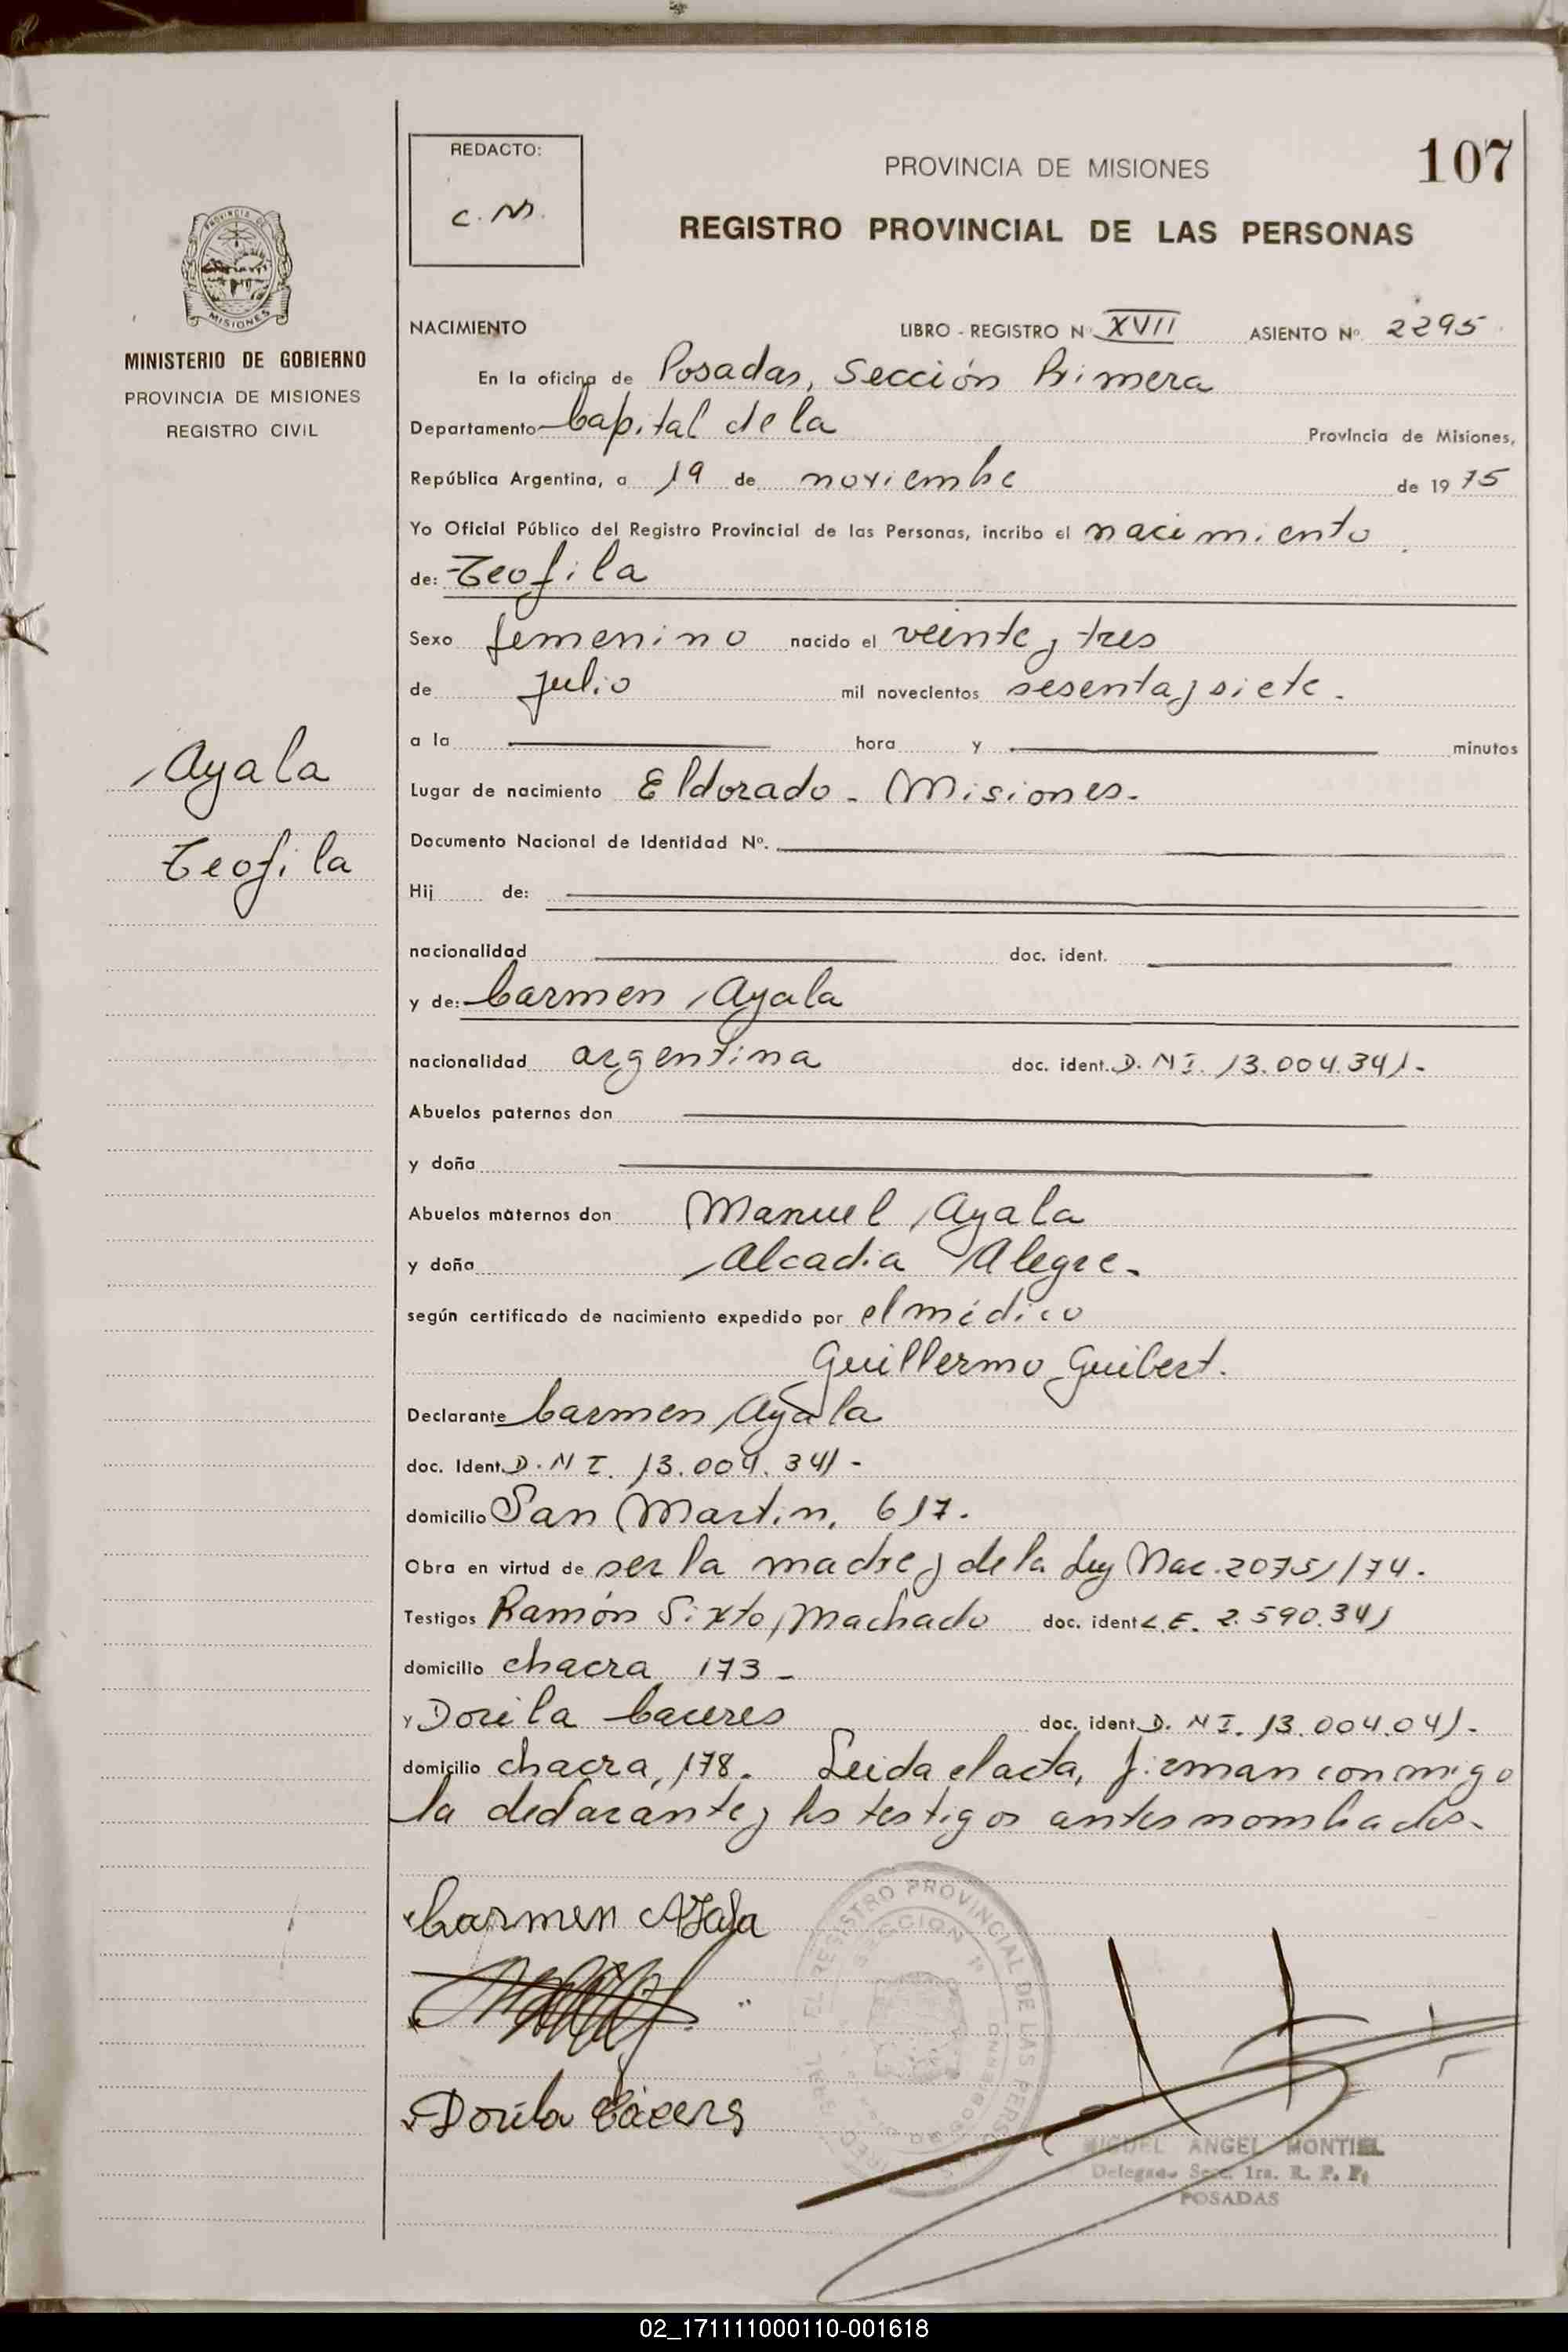 REDACTO:
C. M.
PROVINCIA DE MISIONES
107
REGISTRO PROVINCIAL DE LAS PERSONAS
PROVINCIA DE
MISIONES
MINISTERIO DE GOBIERNO
PROVINCIA DE MISIONES
REGISTRO CIVIL
NACIMIENTO LIBRO - REGISTRO Nº XVII ASIENTO Nº 2295
En la oficina de Posadas, Sección Primera
Departamento Capital de la Provincia de Misiones,
República Argentina, a 19 de noviembre de 19 75
Yo Oficial Público del Registro Provincial de las Personas, incribo el nacimiento
de: Teofila
Sexo femenino nacido el veinte y tres
de julio mil novecientos sesenta y siete.
a la hora y minutos
Ayala
Teofila
Lugar de nacimiento Eldorado - Misiones.
Documento Nacional de Identidad Nº.
Hij de:
nacionalidad doc. ident.
y de: Carmen Ayala
nacionalidad argentina doc. ident. D. N I. 13.004.341.
Abuelos paternos don
y doña
Abuelos maternos don Manuel Ayala
y doña Alcadia Alegre.
según certificado de nacimiento expedido por el médico
Guillermo Guibert.
Declarante Carmen Ayala
doc. Ident. D. N I. 13.004.341 -
domicilio San Martin, 617.
Obra en virtud de ser la madre y de la Ley Nac. 20751/74.
Testigos Ramón Sixto Machado doc. ident L.E. 2.590.341
domicilio chacra 173 -
y Dorila Caceres doc. ident. D. N I. 13.004.041.
domicilio chacra, 178. Leida el acta, firman conmigo
la declarante y los testigos antes nombrados.
Carmen Ayala
Dorila Cáceres
REGISTRO PROVINCIAL DE LAS PERS
SECCION 1ª
MIGUEL ANGEL MONTIEL
Delegado Secc. 1ra. R. P. P.
POSADAS
02_171111000110-001618